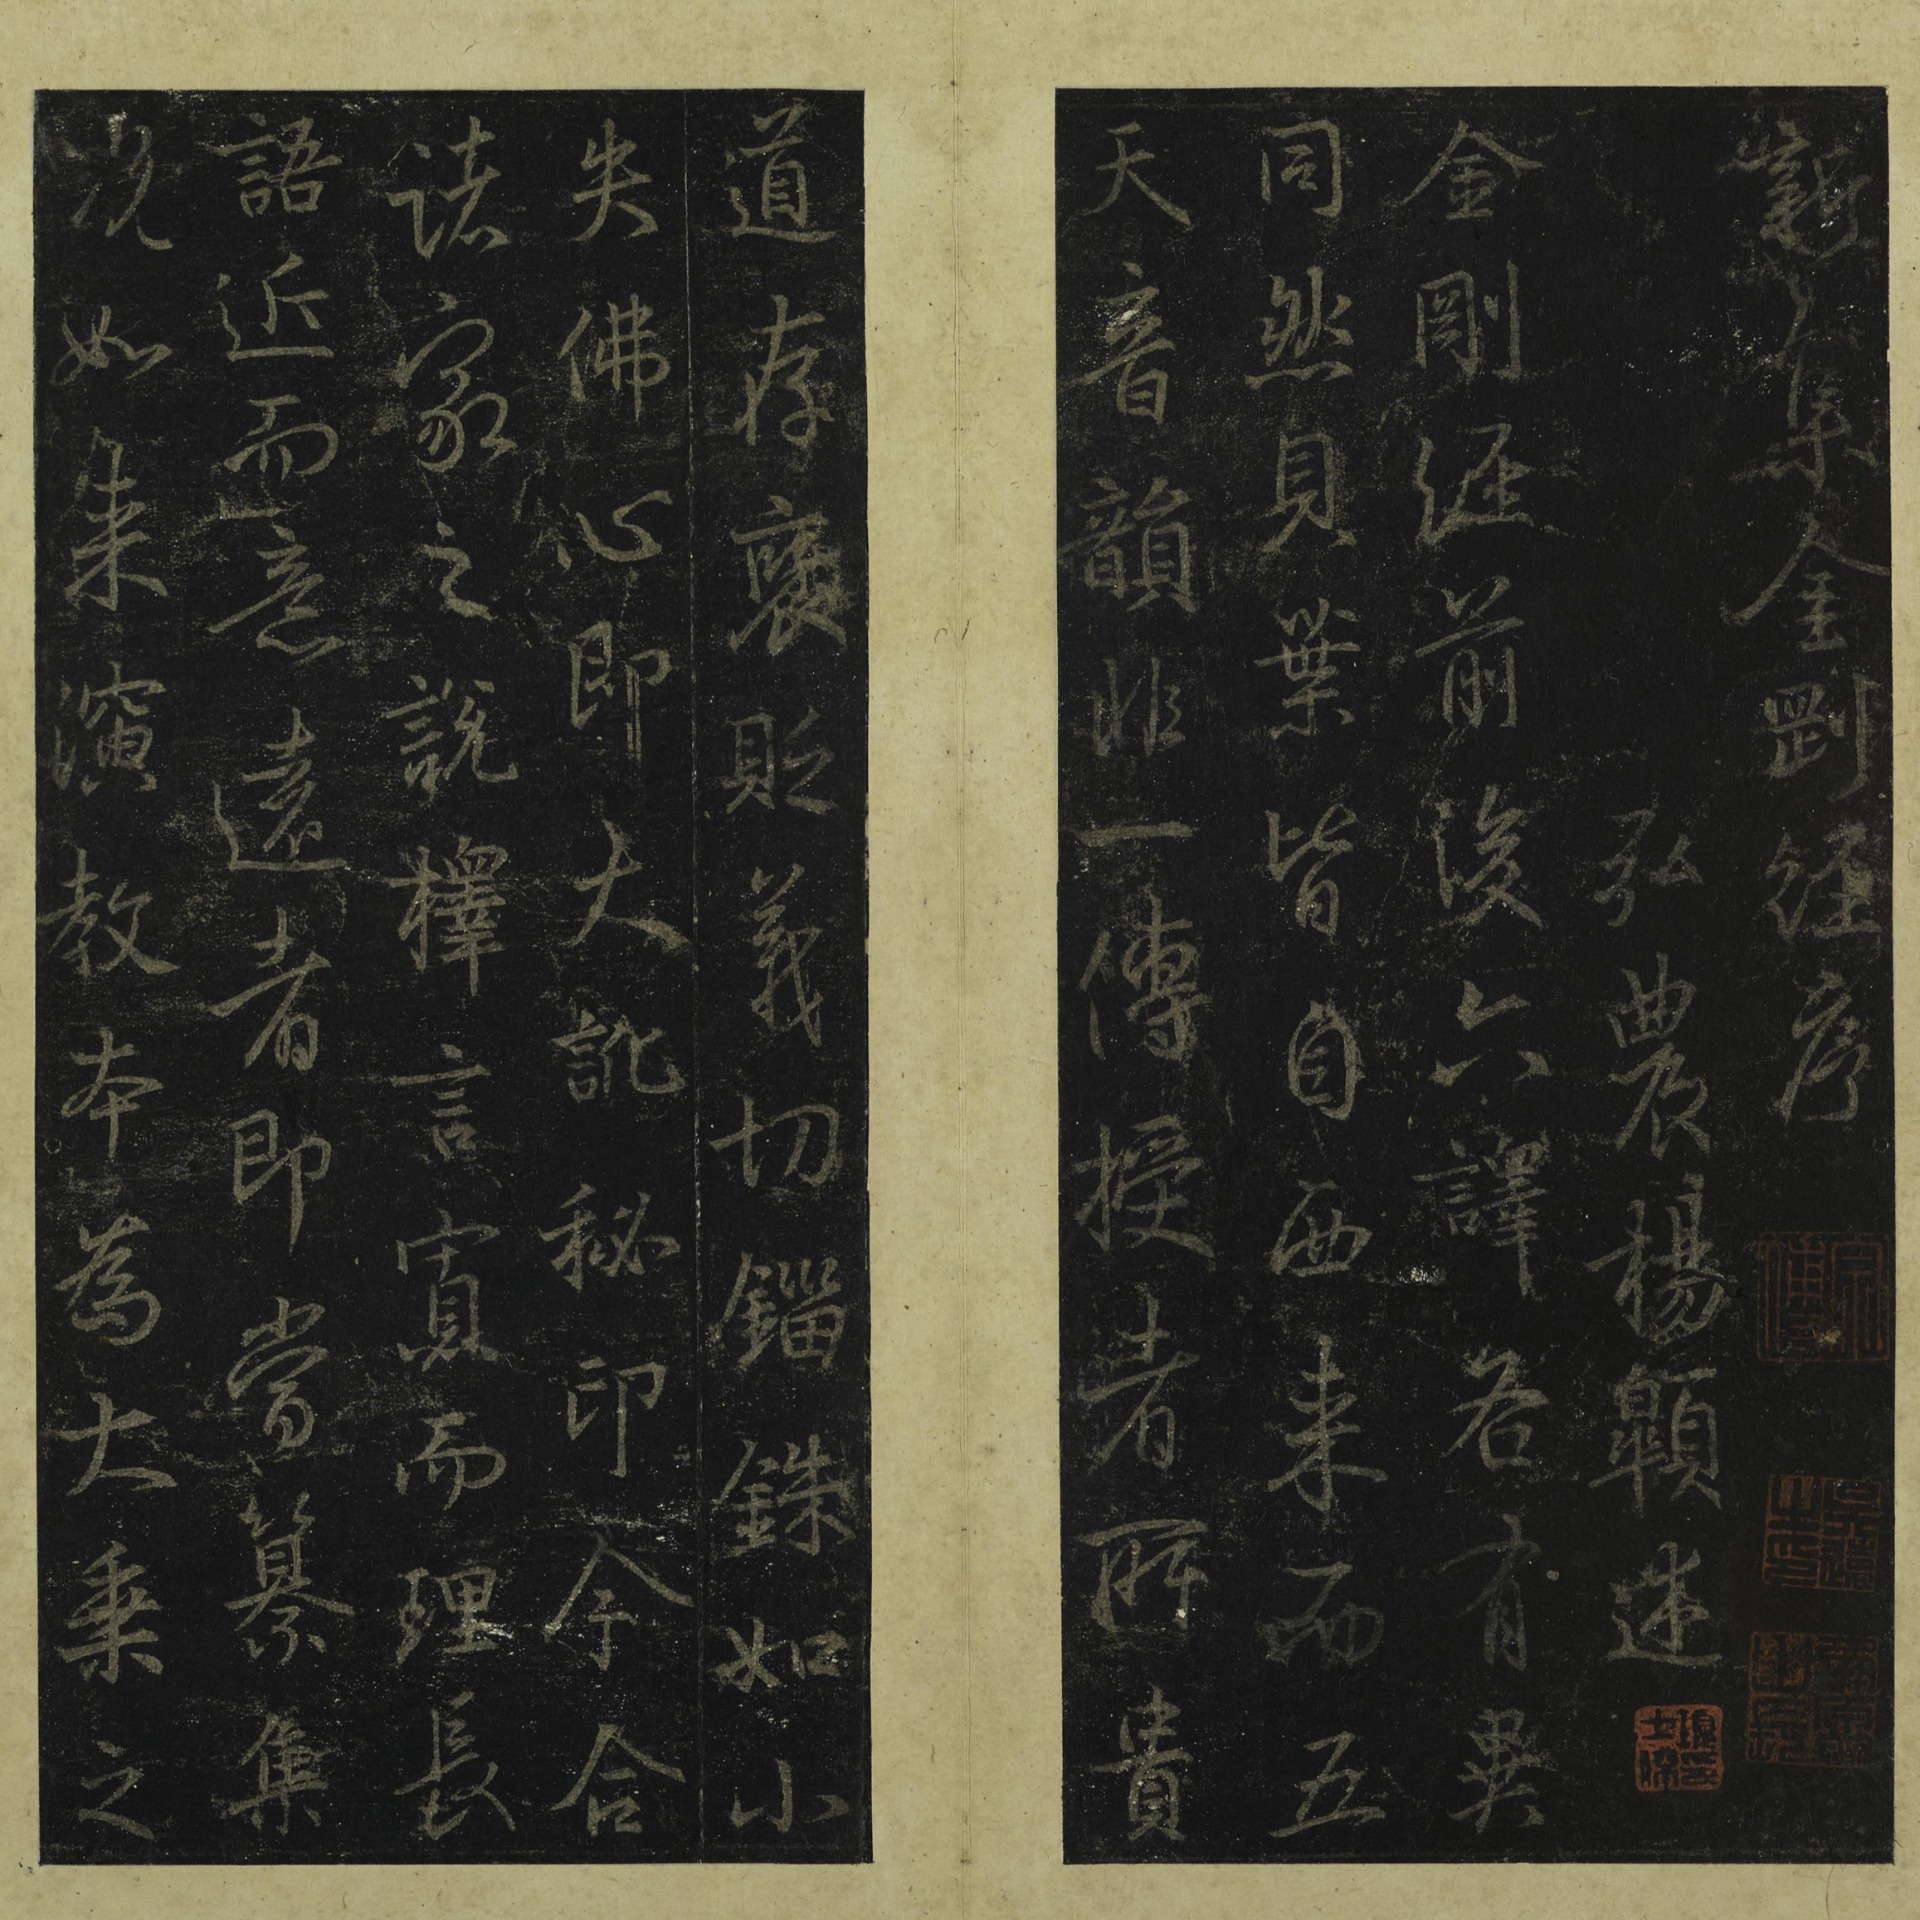 新集金剛經序
弘農楊顗述
金剛經前後六譯各有異
同然貝葉皆自西来而五
天音韻非一傳授者所貴
道存襃貶義切錙銖如小
失佛心即大訛秘印今合
諸家之說釋言寡而理長
語近而意遠者即當纂集
况如来演教本為大乗之